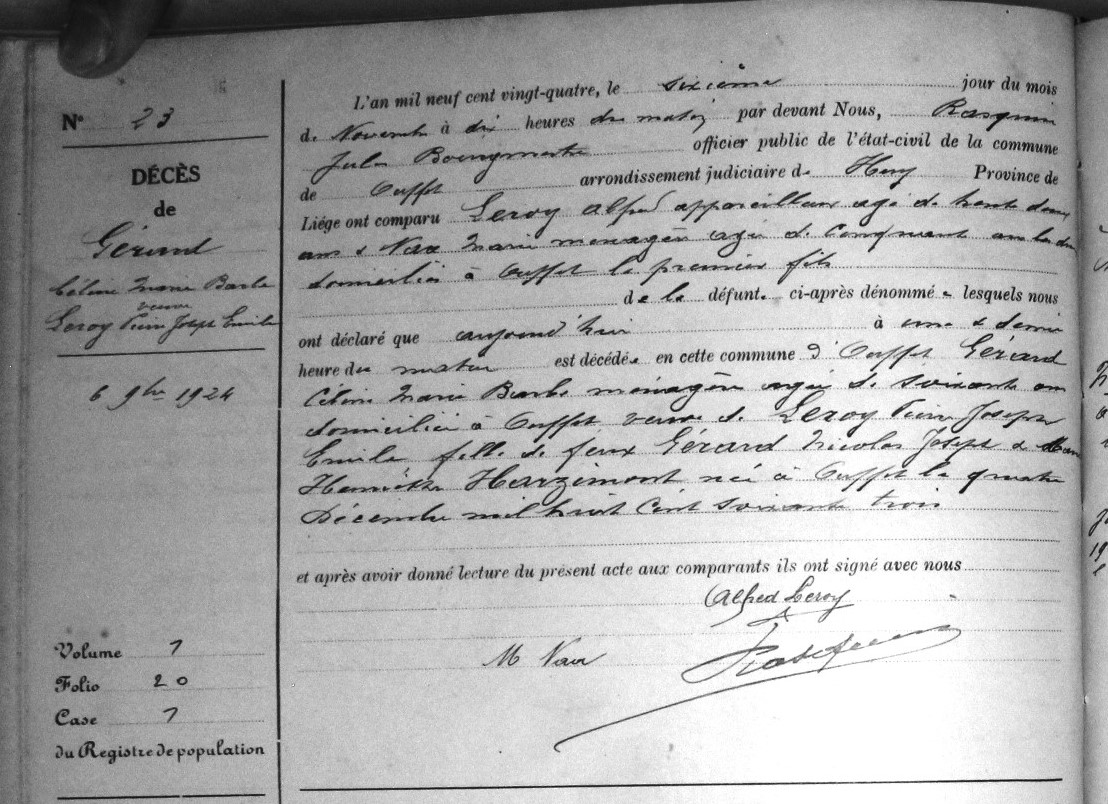 N° 23
DÉCÈS
de
Gérard
Céline Marie Barbe
veuve
Leroy Pierre Joseph Emile
6 9bre 1924
Volume 1
Folio 20
Case 1
du Registre de population
L'an mil neuf cent vingt-quatre, le sixième jour du mois
de Novembre à dix heures du matin par devant Nous, Rasquin
Jules Bourgmestre officier public de l'état-civil de la commune
de Ouffet arrondissement judiciaire de Huy Province de
Liége ont comparu Leroy Alfred appareilleur agé de trente deux
ans & Marie ménagère agée de cinquante ans les deux
domiciliés à Ouffet le premier fils
de la défunte ci-après dénommée lesquels nous
ont déclaré que aujourd'hui à une & demie
heure du matin est décédée en cette commune d'Ouffet Gérard
Céline Marie Barbe ménagère agée de soixante ans
domiciliée à Ouffet veuve de Leroy Pierre Joseph
Emile fille de feux Gérard Nicolas Joseph &
Henriette Harzimont née à Ouffet le quatre
Décembre mil huit cent soixante trois
et après avoir donné lecture du présent acte aux comparants ils ont signé avec nous
Alfred Leroy
M
Rasquin